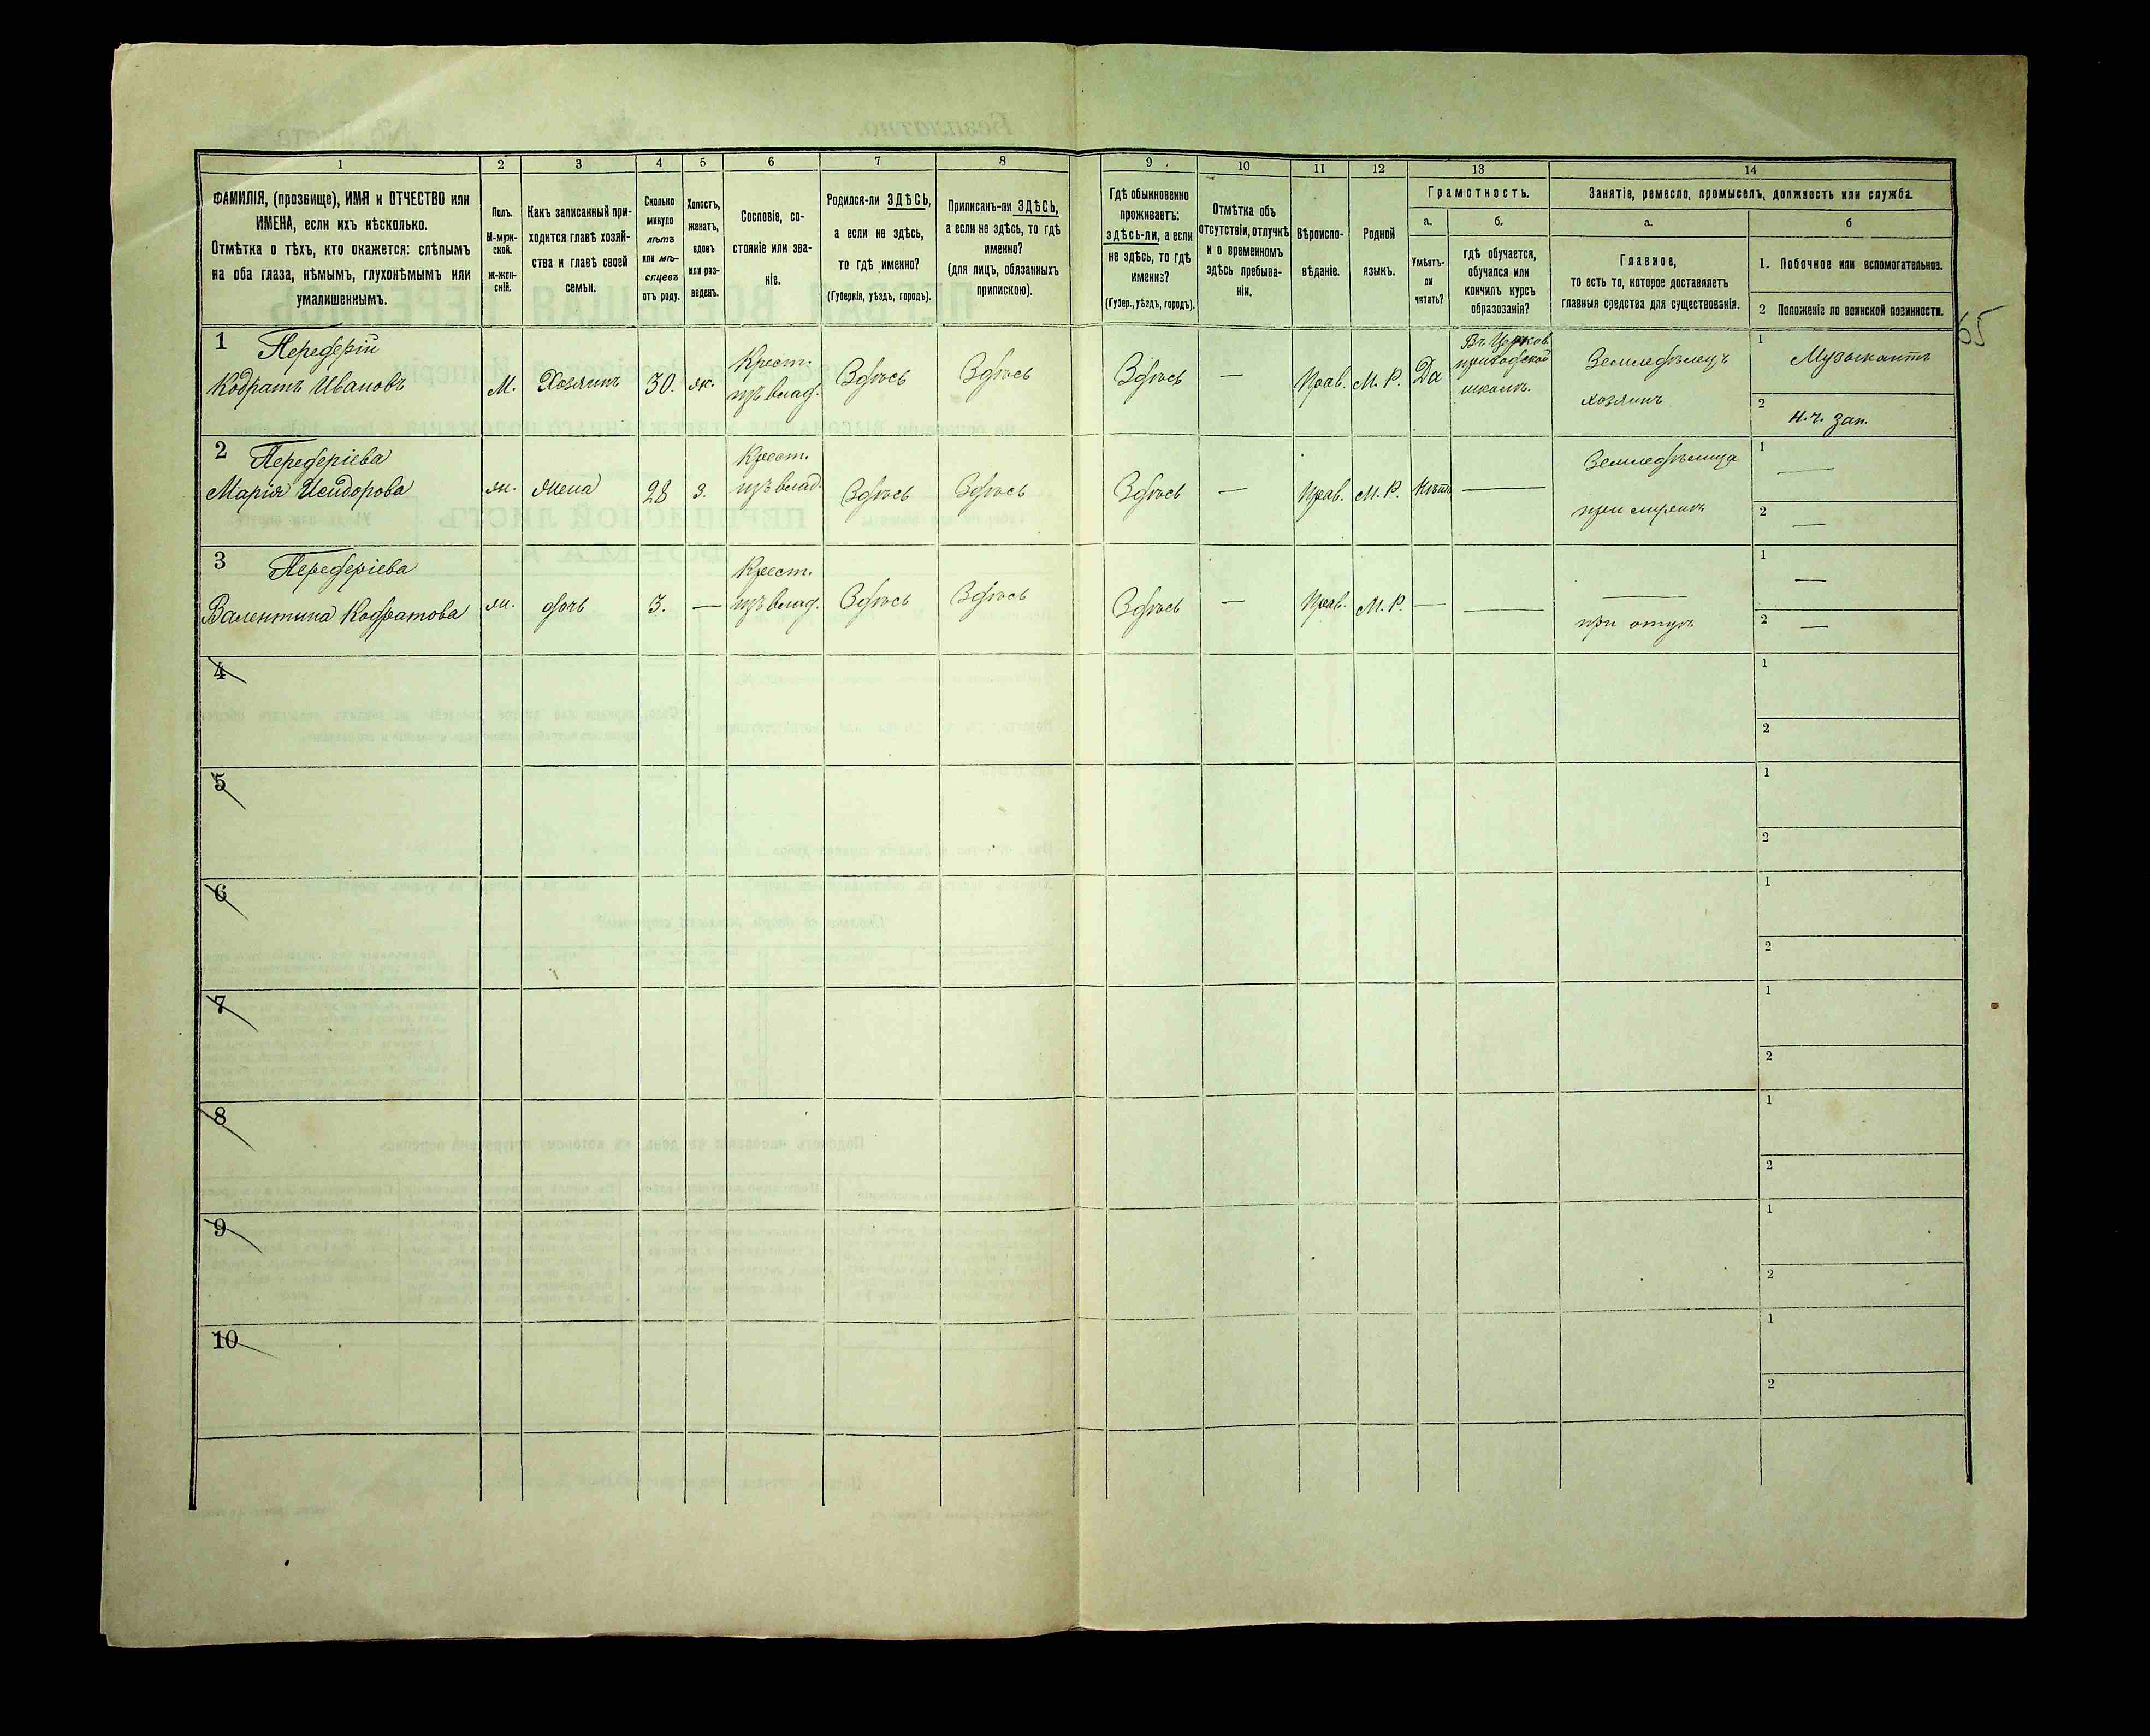 1 2 3 4 5 6 7 8 9 10 11 12 13 14
ФАМИЛІЯ, (прозвище), ИМЯ и ОТЧЕСТВО или
ИМЕНА, если ихъ нѣсколько.
Отмѣтка о тѣхъ, кто окажется: слѣпымъ
на оба глаза, нѣмымъ, глухонѣмымъ или
умалишеннымъ.
Полъ.
М-муж-
ской.
ж-жен-
скій.
Какъ записанный при-
ходится главѣ хозяй-
ства и главѣ своей
семьи.
Сколько
минуло
лѣтъ
или мѣ-
сяцевъ
отъ роду.
Холостъ,
женатъ,
вдовъ
или раз-
веденъ.
Сословіе, со-
стояніе или зва-
ніе.
Родился-ли ЗДѢСЬ,
а если не здѣсь,
то гдѣ именно?
(Губернія, уѣздъ, городъ).
Приписанъ-ли ЗДѢСЬ,
а если не здѣсь, то гдѣ
именно?
(для лицъ, обязанныхъ
припискою).
Гдѣ обыкновенно
проживаетъ:
здѣсь-ли, а если
не здѣсь, то гдѣ
именно?
(Губер., уѣздъ, городъ).
Отмѣтка объ
отсутствіи, отлучкѣ
и о временномъ
здѣсь пребыва-
ніи.
Вѣроиспо-
вѣданіе.
Родной
языкъ.
Грамотность.
а.
Умѣетъ-
ли
читать?
б.
гдѣ обучается,
обучался или
кончилъ курсъ
образованія?
Занятіе, ремесло, промыселъ, должность или служба.
а.
Главное,
то есть то, которое доставляетъ
главныя средства для существованія.
б
1. Побочное или вспомогательное.
2 Положеніе по воинской повинности.
65
1 Передерій
Кодратъ Ивановъ
М.
Хозяинъ
30.
ж.
Крест.
изъ влад.
Здѣсь
Здѣсь
Здѣсь
—
Прав.
М. Р.
Да
Въ Церков.
приходской
школѣ.
Земледѣлецъ
хозяинъ
1 Музыкантъ
2 Н. ч. зап.
2 Передеріева
Марія Исидорова
ж.
жена
28
з.
Крест.
изъ влад.
Здѣсь
Здѣсь
Здѣсь
—
Прав.
М. Р.
Нѣтъ
—
Земледѣлица
при мужѣ
1 —
2 —
3 Передеріева
Валентина Кодратова
ж.
дочь
3.
—
Крест.
изъ влад.
Здѣсь
Здѣсь
Здѣсь
—
Прав.
М. Р.
—
—
—
при отцѣ
1 —
2 —
4
1
2
5
1
2
6
1
2
7
1
2
8
1
2
9
1
2
10
1
2